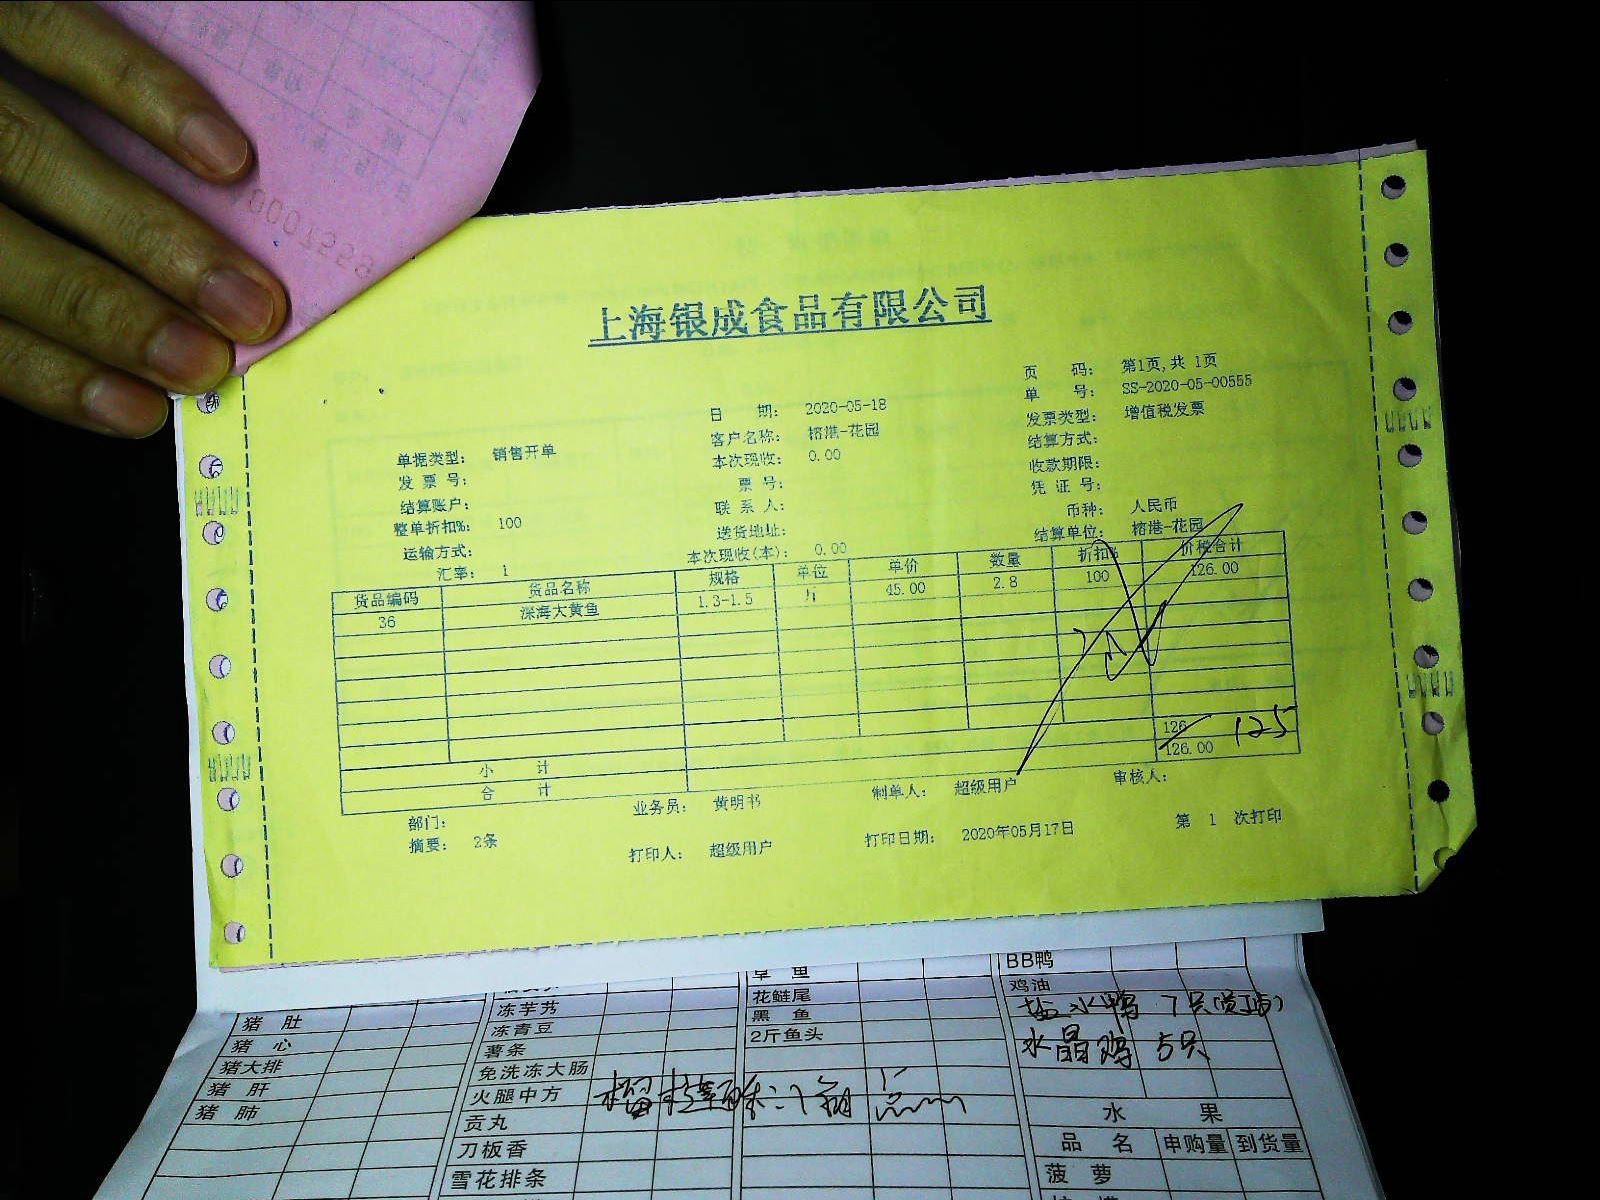 0007559
上海银成食品有限公司
页 码： 第1页,共 1页
日 期： 2020-05-18 单 号： SS-2020-05-00555
单据类型： 销售开单 客户名称： 榕港-花园 发票类型： 增值税发票
发 票 号： 本次现收： 0.00 结算方式：
结算账户： 票 号： 收款期限：
整单折扣%： 100 联 系 人： 凭 证 号：
运输方式： 送货地址： 币种： 人民币
汇率： 1 本次现收(本)： 0.00 结算单位： 榕港-花园
货品编码 货品名称 规格 单位 单价 数量 折扣% 价税合计
36 深海大黄鱼 1.3-1.5 斤 45.00 2.8 100 126.00
小 计 126
合 计 126.00 125
部门： 业务员： 黄明书 制单人： 超级用户 审核人：
摘要： 2条 打印人： 超级用户 打印日期： 2020年05月17日 第 1 次打印
猪 肚
猪 心
猪大排
猪 肝
猪 肺
冻芋艿
冻青豆
薯条
免洗冻大肠
火腿中方
贡丸
刀板香
雪花排条
草 鱼
花鲢尾
黑 鱼
2斤鱼头
BB鸭
鸡油
盐水鸭 7只
水晶鸡 5只
水 果
品 名 申购量 到货量
菠 萝